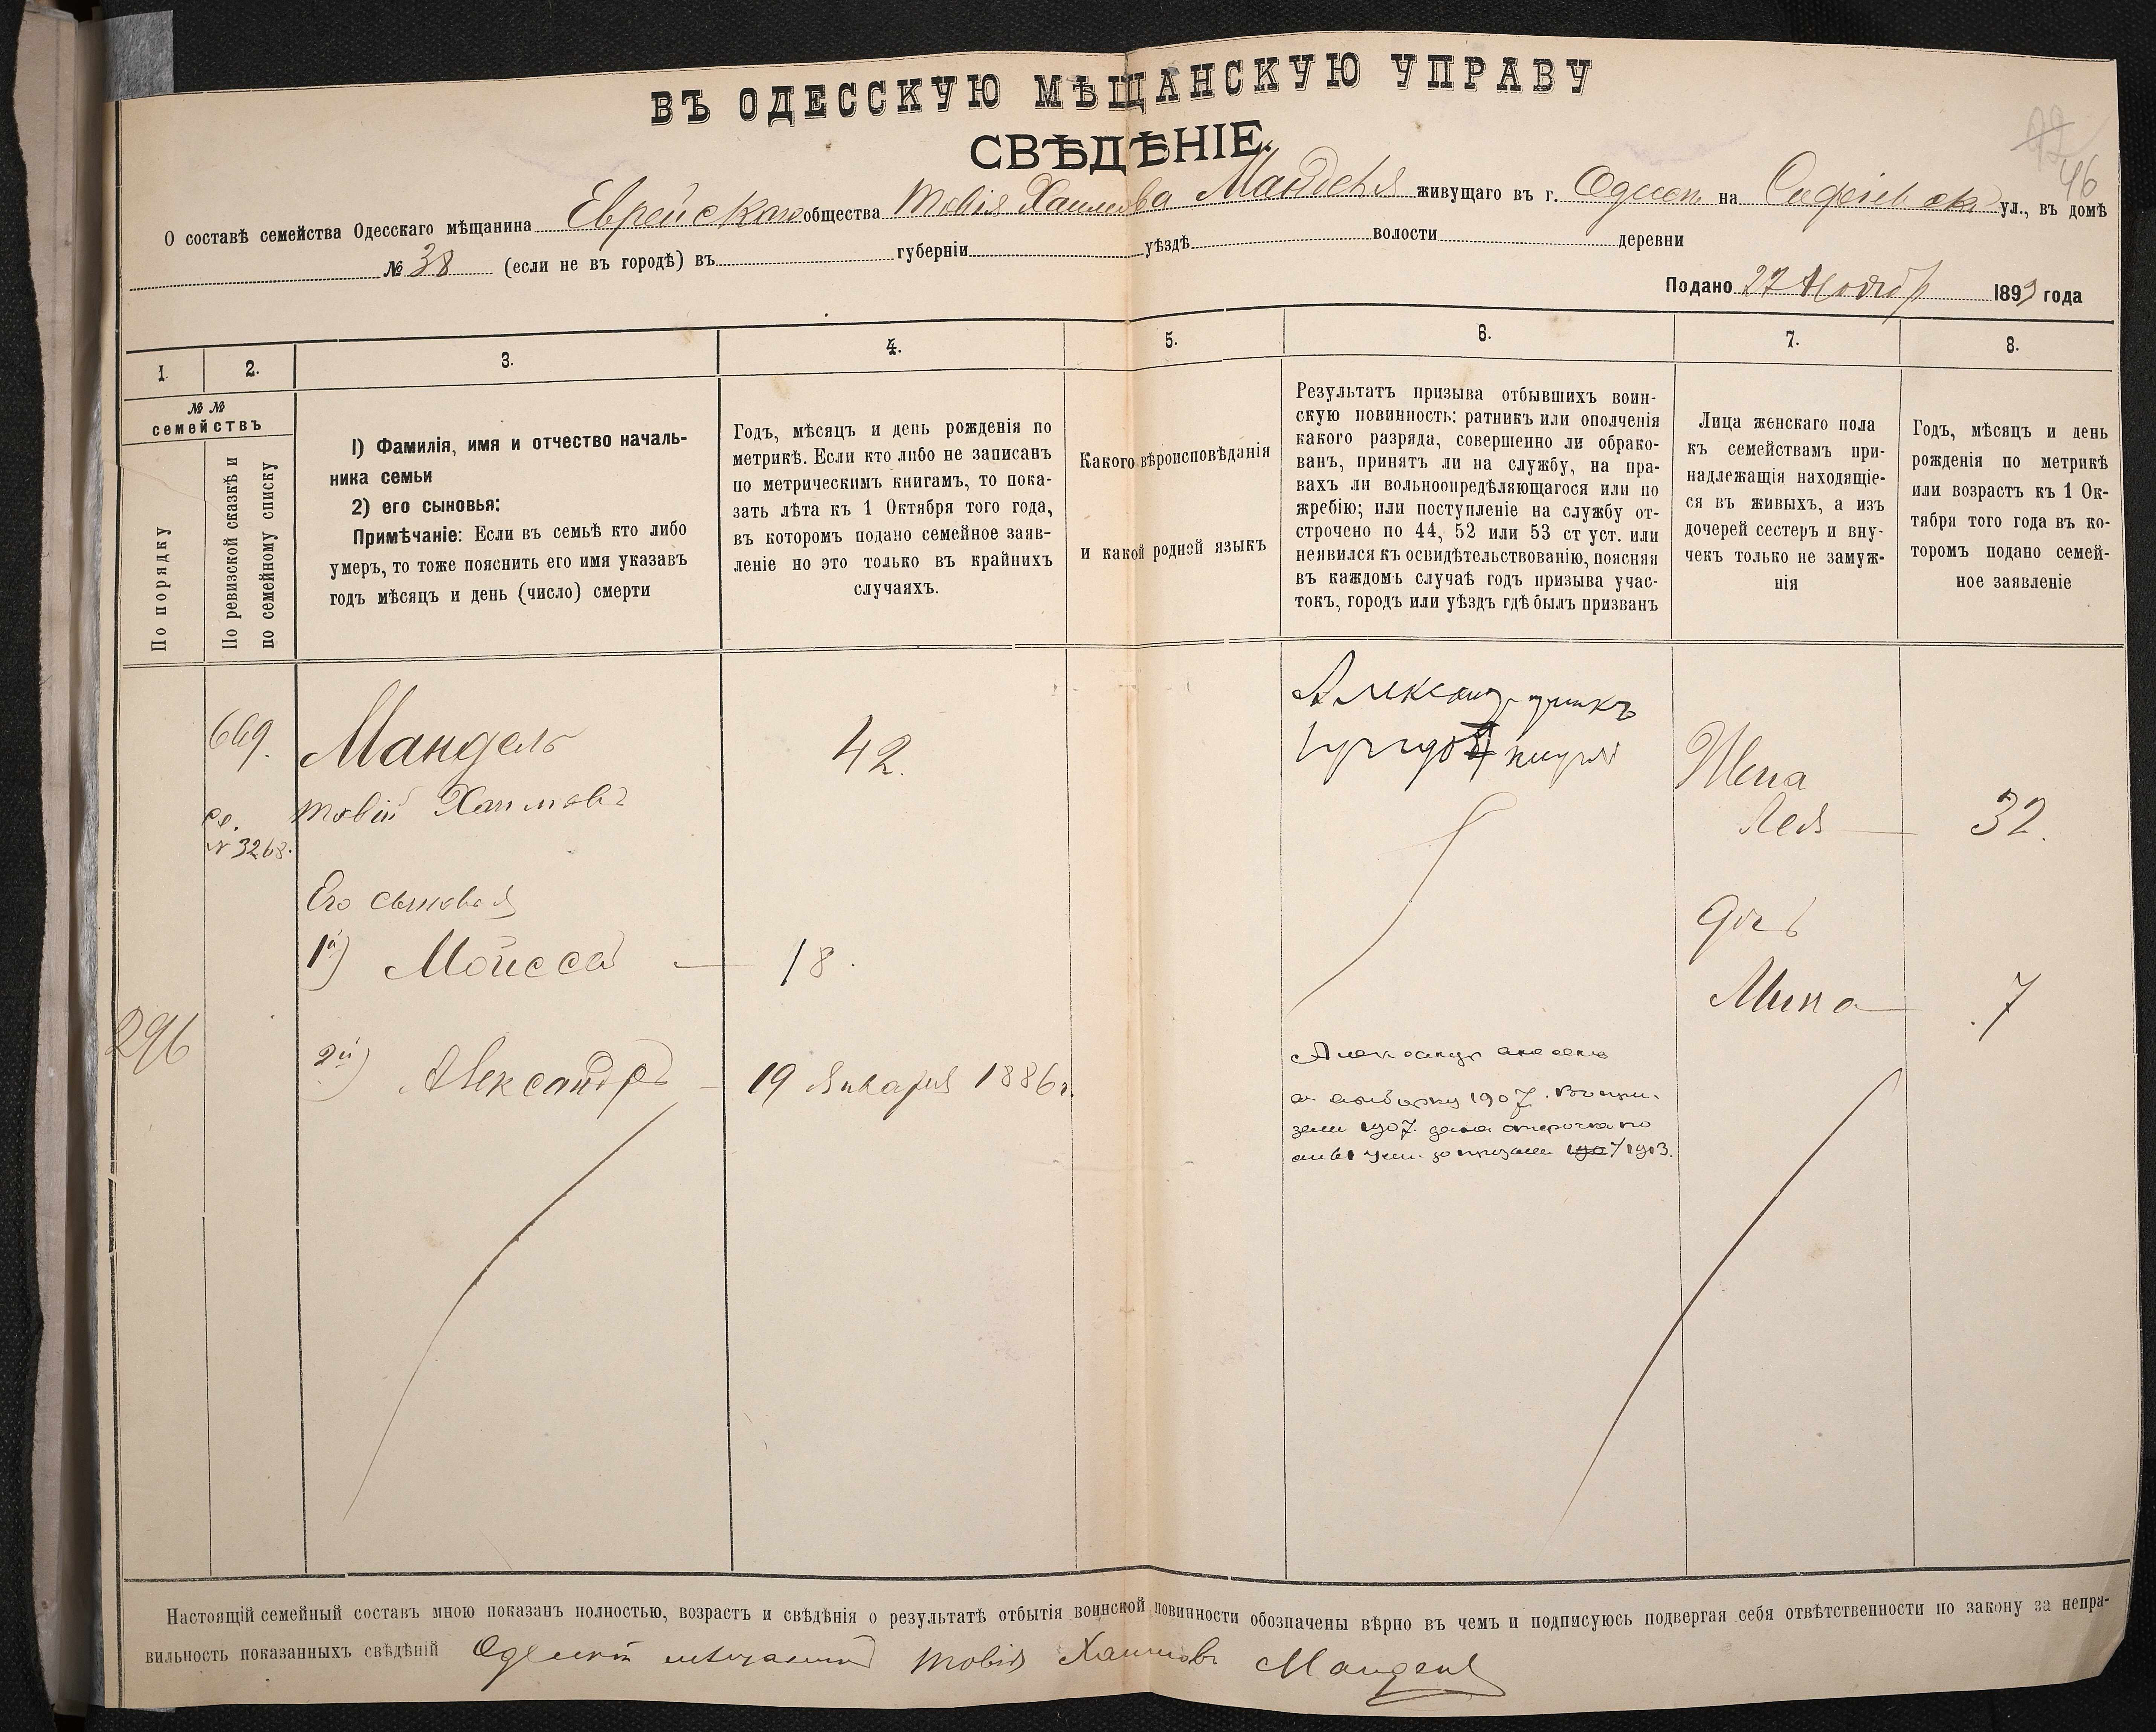 ВЪ ОДЕССКУЮ МѢЩАНСКУЮ УПРАВУ
СВѢДѢНІЕ.
46
О составѣ семейства Одесскаго мѣщанина Еврейскаго общества Товія Хаимова Манделя живущаго въ г. Одессѣ на Софіевской ул., въ домѣ
№ 38 (если не въ городѣ) въ губерніи уѣздѣ волости деревни
Подано 27 Ноябр 1893 года
1. 2. 3. 4. 5. 6. 7. 8.
№ №
семействъ
По порядку
По ревизской сказкѣ и
по семейному списку
1) Фамилія, имя и отчество началь-
ника семьи
2) его сыновья:
Примѣчаніе: Если въ семьѣ кто либо
умеръ, то тоже пояснить его имя указавъ
годъ мѣсяцъ и день (число) смерти
Годъ, мѣсяцъ и день рожденія по
метрикѣ. Если кто либо не записанъ
по метрическимъ книгамъ, то пока-
зать лѣта къ 1 Октября того года,
въ которомъ подано семейное заяв-
леніе но это только въ крайнихъ
случаяхъ.
Какого вѣроисповѣданія
и какой родной языкъ
Результатъ призыва отбывшихъ воин-
скую повинность: ратникъ или ополченія
какого разряда, совершенно ли обрако-
ванъ, принятъ ли на службу, на пра-
вахъ ли вольноопредѣляющагося или по
жребію; или поступленіе на службу от-
строчено по 44, 52 или 53 ст уст. или
неявился къ освидѣтельствованію, поясняя
въ каждомъ случаѣ годъ призыва учас-
токъ, городъ или уѣздъ гдѣ былъ призванъ
Лица женскаго пола
къ семействамъ при-
надлежащія находящіе-
ся въ живыхъ, а изъ
дочерей сестеръ и вну-
чекъ только не замуж-
нія
Годъ, мѣсяцъ и день
рожденія по метрикѣ
или возрастъ къ 1 Ок-
тября того года въ ко-
торомъ подано семей-
ное заявленіе
669. Мандель 42.
Товій Хаимовъ
№ 3268.
Жена
Лея 32.
Его сыновья
1й) Мойсей 18.
Дочь
Мина 7
296
2й) Александръ 19 Января 1886 г.
Александръ
1907.
1907. дана отсрочка по
1907 1913.
Настоящій семейный составъ мною показанъ полностью, возрастъ и свѣдѣнія о результатѣ отбытія воинской повинности обозначены вѣрно въ чемъ и подписуюсь подвергая себя отвѣтственности по закону за непра-
вильность показанныхъ свѣдѣній Одесскій мѣщанинъ Товія Хаимовъ Мандель